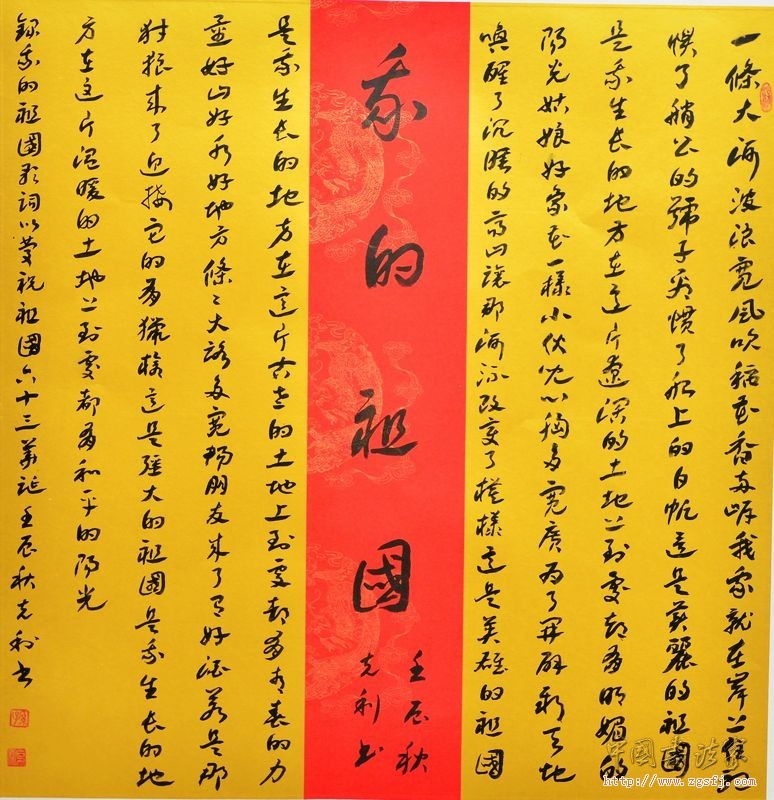 一條大河波浪寬風吹稻花香兩岸我家就在岸上住聽
慣了艄公的號子看慣了船上的白帆這是美麗的祖國
是我生長的地方在這片遼闊的土地上到處都有明媚的
陽光姑娘好象花一樣小伙兒心胸多寬廣為了開辟新天地
喚醒了沉睡的高山讓那河流改變了模樣這是英雄的祖國
我的祖國
壬辰秋
克利书
是我生長的地方在這片古老的土地上到處都有青春的力
量好山好水好地方條〻大路多寬暢朋友來了有好酒若是那
豺狼來了迎接它的有獵槍這是強大的祖國是我生長的地
方在這片溫暖的土地上到處都有和平的陽光
錄我的祖國歌詞以慶祝祖國六十三華誕壬辰秋克利书
中国书法家
http://www.zgsfj.com